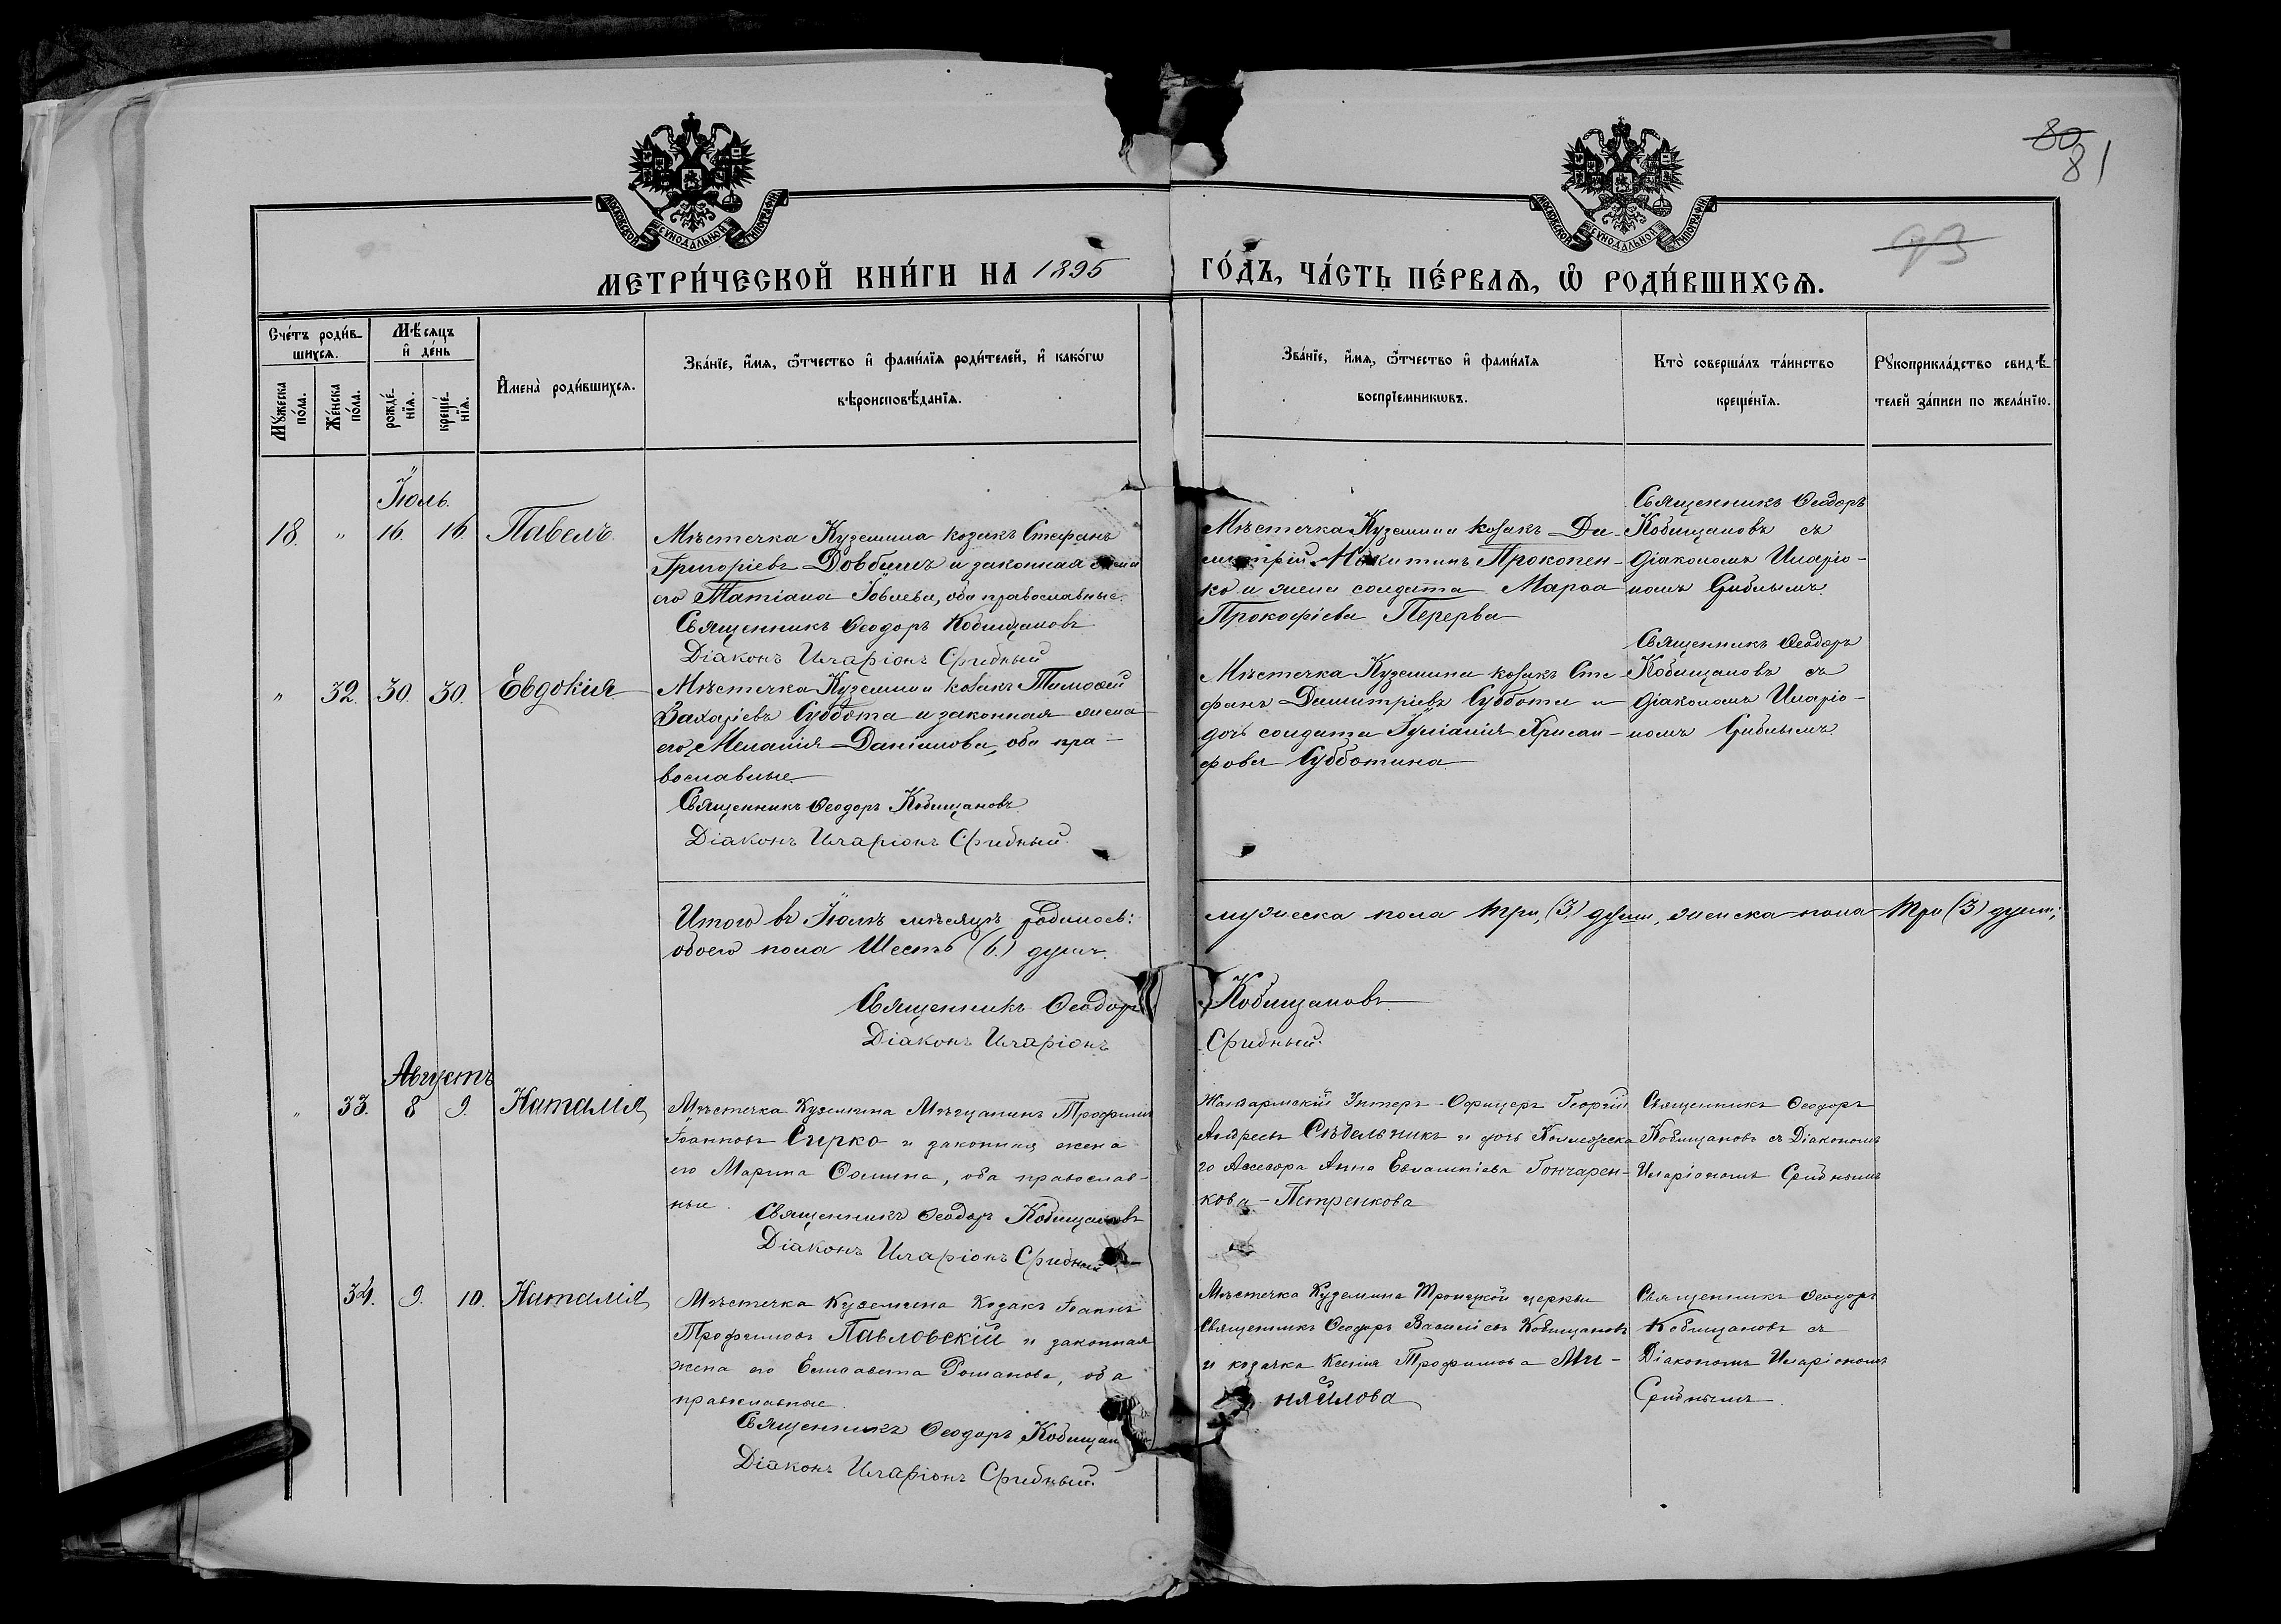 80
81
93
МОСКОВСКОЙ СѴНОДАЛЬНОЙ ТИПОГРАФІИ
МОСКОВСКОЙ СѴНОДАЛЬНОЙ ТИПОГРАФІИ
МЕТРИ́ЧЕСКОЙ КНИ́ГИ НА 1895 ГО́ДЪ, ЧА́СТЬ ПЕ́РВАѦ, Ѡ҆ РОДИ́ВШИХСѦ.
Сче́тъ роди́в-
шихсѧ.
Мѣ́сѧцъ
и҆ де́нь
Мꙋ́жеска
по́ла.
Же́нска
по́ла.
рожде́-
нїѧ.
креще́-
нїѧ.
И҆мена̀ роди́вшихсѧ.
Зва́нїе, и҆́мѧ, ѻ҆́тчество и҆ фами́лїѧ роди́телей, и҆ како́гѡ
вѣроисповѣ́данїѧ.
Зва́нїе, и҆́мѧ, ѻ҆́тчество и҆ фами́лїѧ
воспрїе́мникѡвъ.
Кто̀ соверша́лъ та́инство
креще́нїѧ.
Рꙋкоприкла́дство свидѣ́-
телей за́писи по жела́нїю.
Іюль.
18. " 16. 16. Павелъ.
Мѣстечка Куземина козакъ Стефанъ
Григоріевъ Довбишъ и законная жена
его Татіана Іовлева, оба православные.
Священникъ Ѳеодоръ Кобищановъ
Діаконъ Иларіонъ Срибный
Мѣстечка Куземина козакъ Ди-
митрій Никитинъ Прокопен-
ко и жена солдата Марѳа
Прокофіева Перерва
Священникъ Ѳеодоръ
Кобищановъ съ
діакономъ Иларіо-
номъ Срибнымъ.
" 32. 30. 30. Евдокія
Мѣстечка Куземина козакъ Тимоѳей
Захаріевъ Суббота и законная жена
его Меланія Даніилова, оба пра-
вославные.
Священникъ Ѳеодоръ Кобищановъ.
Діаконъ Иларіонъ Срибный.
Мѣстечка Куземина козакъ Сте-
фанъ Димитріевъ Суббота и
дочь солдата Іуліанія Хрисан-
фова Субботина
Священникъ Ѳеодоръ
Кобищановъ съ
діакономъ Иларіо-
номъ Срибнымъ.
Итого въ Іюлѣ мѣсяцѣ родилось: мужеска пола три, (3) души, женска пола три (3) души;
обоего пола шесть (6.) душъ.
Священникъ Ѳеодоръ Кобищановъ.
Діаконъ Иларіонъ Срибный.
Августъ
" 33. 8 9. Наталія
Мѣстечка Куземина Мѣщанинъ Трофимъ
Іоанновъ Сирко и законная жена
его Марина Ѳомина, оба православ-
ные.
Священникъ Ѳеодоръ Кобищановъ
Діаконъ Иларіонъ Срибный
Жандармскій Унтеръ-Офицеръ Георгій
Андреевъ Сѣдельникъ и дочь Коллежска
го Асесора Анна Евлампіева Гончарен-
кова-Петренкова
Священникъ Ѳеодоръ
Кобищановъ съ Діакономъ
Иларіономъ Срибнымъ
34. 9. 10. Наталія
Мѣстечка Куземина Козакъ Іоаннъ
Трофимовъ Павловскій и законная
жена его Елисавета Романова, оба
православные.
Священникъ Ѳеодоръ Кобищан
Діаконъ Иларіонъ Срибный.
Мѣстечка Куземина Троицкой церкви
Священникъ Ѳеодоръ Василіевъ Кобищановъ
и козачка Ксенія Трофимова Ми-
няйлова
Священникъ Ѳеодоръ
Кобищановъ съ
Діакономъ Иларіономъ
Срибнымъ.